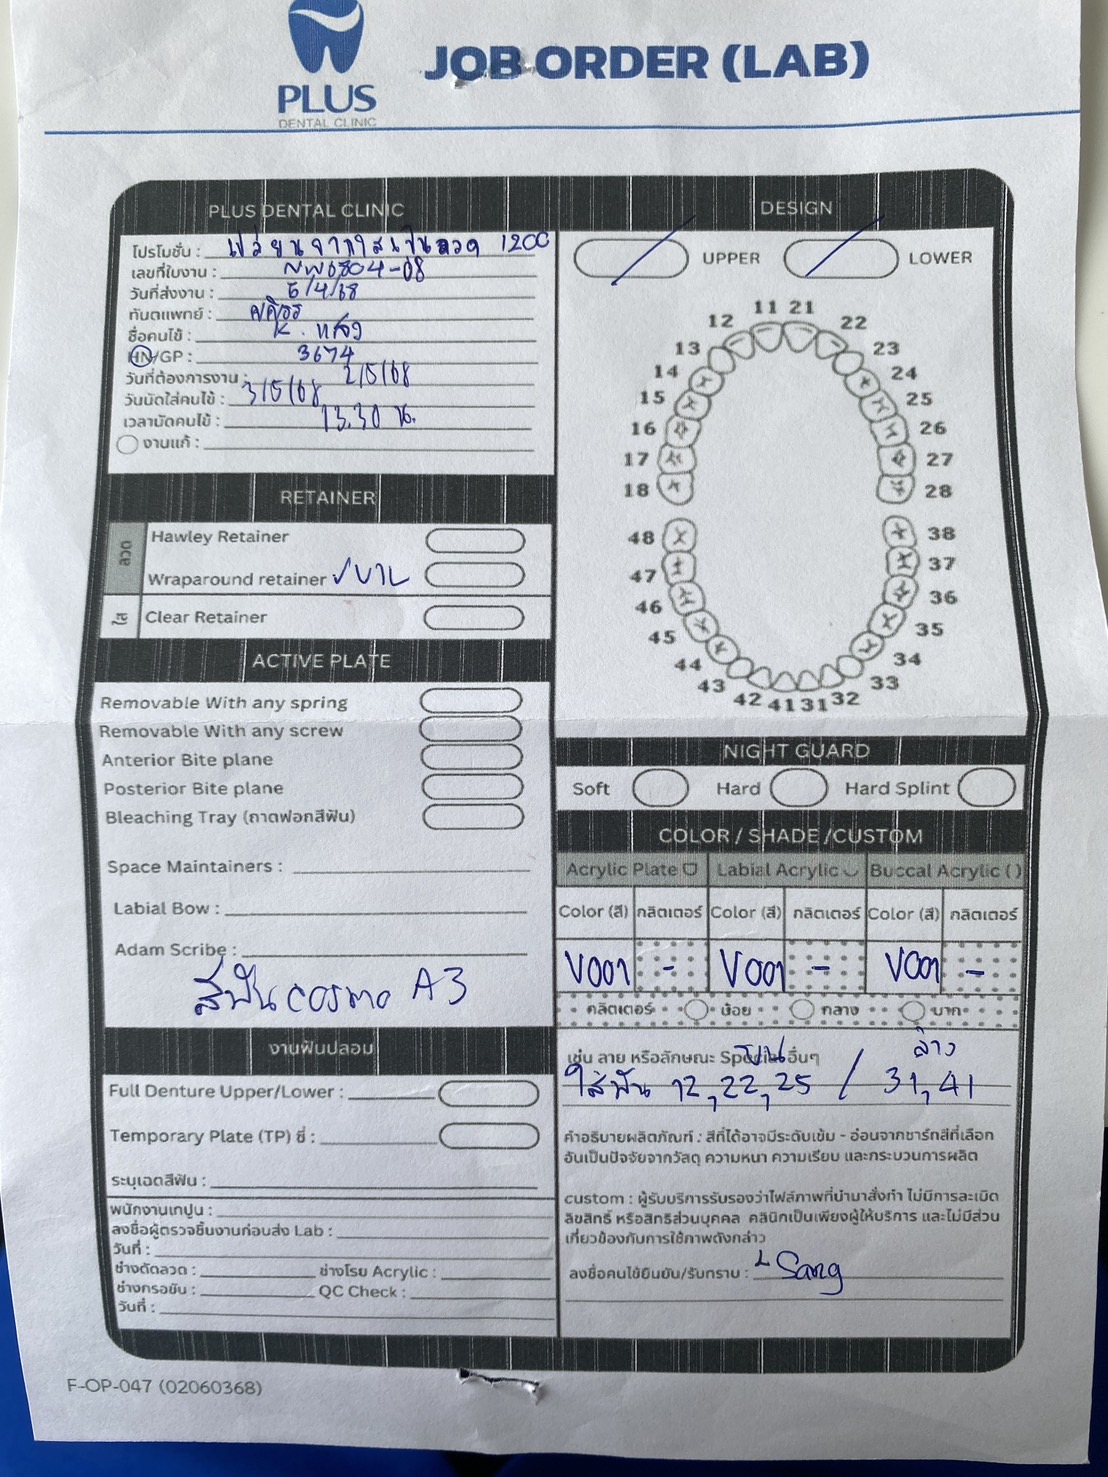 PLUS
DENTAL CLINIC
JOB ORDER (LAB)
PLUS DENTAL CLINIC
โปรโมชั่น : เปลี่ยนจากใสเป็นลวด 1200
เลขที่ใบงาน : 6804-08
วันที่ส่งงาน : 5/4/68
ทันตแพทย์ :
ชื่อคนไข้ : K. แสง
HN/GP : 3674
วันที่ต้องการงาน : 2/5/68
วันนัดใส่คนไข้ : 3/5/68
เวลานัดคนไข้ : 13.30 น.
งานแก้ :
RETAINER
ลวด
Hawley Retainer
Wraparound retainer ✓บาง
ใส
Clear Retainer
ACTIVE PLATE
Removable With any spring
Removable With any screw
Anterior Bite plane
Posterior Bite plane
Bleaching Tray (ถาดฟอกสีฟัน)
Space Maintainers :
Labial Bow :
Adam Scribe :
สีฟัน cosmo A3
งานฟันปลอม
Full Denture Upper/Lower :
Temporary Plate (TP) ซี่ :
ระบุเฉดสีฟัน :
พนักงานเทปูน :
ลงชื่อผู้ตรวจชิ้นงานก่อนส่ง Lab :
วันที่ :
ช่างดัดลวด : ช่างโรย Acrylic :
ช่างกรอขัน : QC Check :
วันที่ :
DESIGN
UPPER LOWER
11 21
12 22
13 23
14 24
15 25
16 26
17 27
18 28
48 38
47 37
46 36
45 35
44 34
43 33
42 41 31 32
NIGHT GUARD
Soft Hard Hard Splint
COLOR / SHADE /CUSTOM
Acrylic Plate Labial Acrylic Buccal Acrylic ( )
Color (สี) กลิตเตอร์ Color (สี) กลิตเตอร์ Color (สี) กลิตเตอร์
V001 - V001 - V001 -
กลิตเตอร์ น้อย กลาง มาก
เช่น ลาย หรือลักษณะ Special อื่นๆ
บน ล่าง
ใส่ฟัน 12, 22, 25 / 31, 41
คำอธิบายผลิตภัณฑ์ : สีที่ได้อาจมีระดับเข้ม - อ่อนจากชาร์ทสีที่เลือก
อันเป็นปัจจัยจากวัสดุ ความหนา ความเรียบ และกระบวนการผลิต
custom : ผู้รับบริการรับรองว่าไฟล์ภาพที่นำมาสั่งทำ ไม่มีการละเมิด
ลิขสิทธิ์ หรือสิทธิส่วนบุคคล คลินิกเป็นเพียงผู้ให้บริการ และไม่มีส่วน
เกี่ยวข้องกับการใช้ภาพดังกล่าว
ลงชื่อคนไข้ยืนยัน/รับทราบ : Sang
F-OP-047 (02060368)